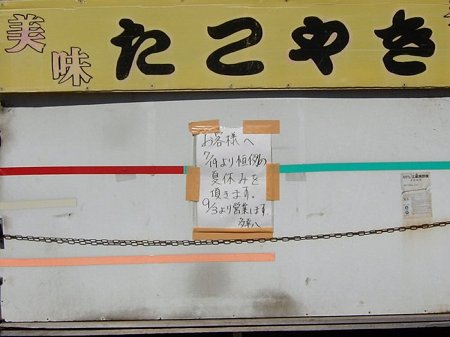 美味 たこやき
お客様へ
7/19より恒例の
夏休みを
頂きます。
9/3より営業します